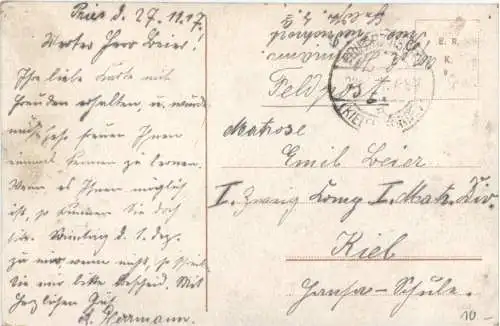 Pries d. 27.11.17.
Werter Herr Beier!
Ihre liebe Karte mit
Freuden erhalten, u. würde
mich sehr freuen Ihnen
einmal kennen zu lernen.
Wenn es Ihnen möglich
ist, so kommen Sie doch
bitte. Sonntag d. 2. Dez.
zu mir, wenn nicht, so
Sie mir bitte Bescheid. Mit
Herzlichen Gruß
Herrmann.
Feldpost
Matrose
Emil Beier
I. Zweig Komp I. Matr. Div.
Kiel
Hansa-Schule.
10-